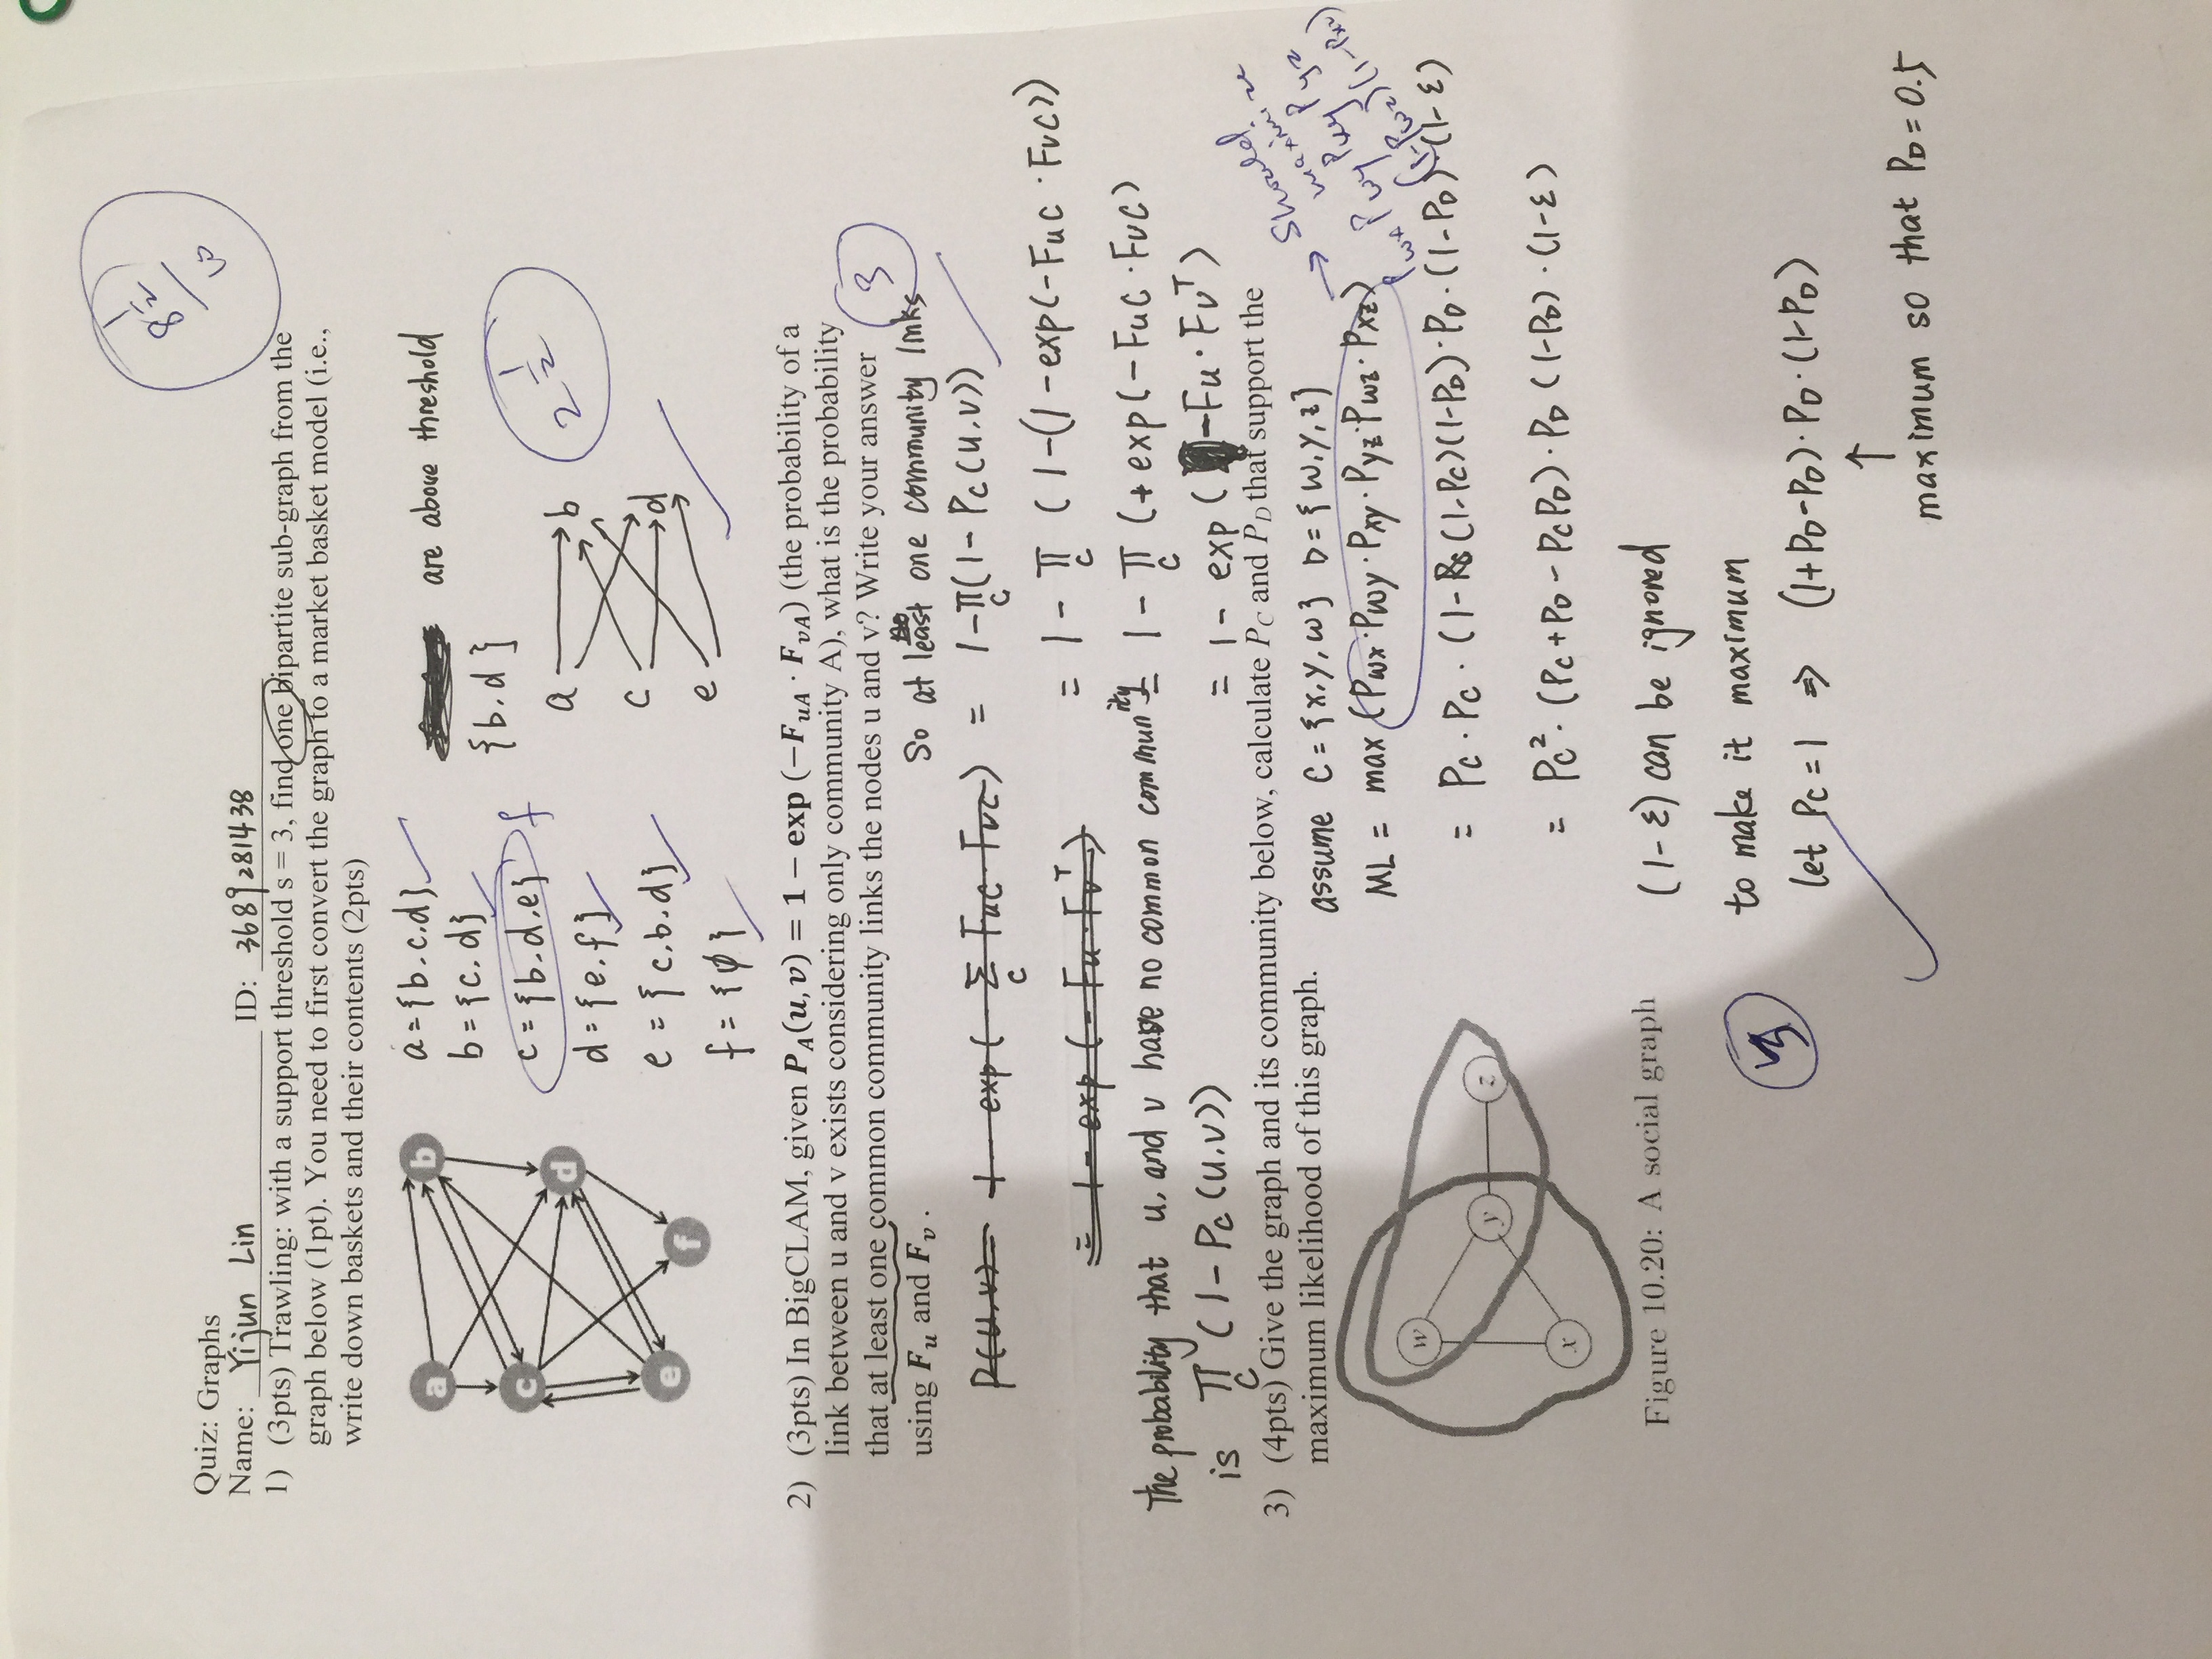 8 1/2
/10
Quiz: Graphs
Name: Yijun Lin ID: 3689281438
1) (3pts) Trawling: with a support threshold s = 3, find one bipartite sub-graph from the
graph below (1pt). You need to first convert the graph to a market basket model (i.e.,
write down baskets and their contents (2pts)
a
b
c
d
e
f
a = {b.c.d}
b = {c.d}
c = {b.d.e} f
d = {e.f}
e = {c.b.d}
f = {φ}
are above threshold
{b.d}
a b
c d
e
2 1/2
2) (3pts) In BigCLAM, given P_A(u, v) = 1 − exp (−F_uA · F_vA) (the probability of a
link between u and v exists considering only community A), what is the probability
that at least one common community links the nodes u and v? Write your answer
using F_u and F_v .
3
P(u.v) = 1 - exp(- Σ_C Fuc·Fvc)
= 1 - exp(-Fu·Fv^T)
The probability that u, and v have no common community
is π_C (1-Pc(u.v))
So at least one community links
= 1-π_C(1-Pc(u.v))
= 1 - π_C (1-(1-exp(-Fuc·Fvc))
= 1 - π_C (+exp(-Fuc·Fvc)
= 1 - exp(-Fu·Fv^T)
3) (4pts) Give the graph and its community below, calculate P_C and P_D that support the
maximum likelihood of this graph.
w
y
z
x
Figure 10.20: A social graph
assume C = {x,y,w} D = {w,y,z}
ML = max (Pwx·Pwy·Pxy·Pyz·Pwz·Pxz)
→ Should
maximize
Pwx Pwy Pxy Pyz
(1-Pwz)(1-Pxz)
= Pc·Pc·(1-(1-Pc)(1-PD)·PD·(1-PD)·(1-ε)
= Pc²·(Pc+PD-PcPD)·PD(1-PD)·(1-ε)
(1-ε) can be ignored
to make it maximum
let Pc = 1 ⇒ (1+PD-PD)·PD·(1-PD)
↑
maximum so that PD = 0.5